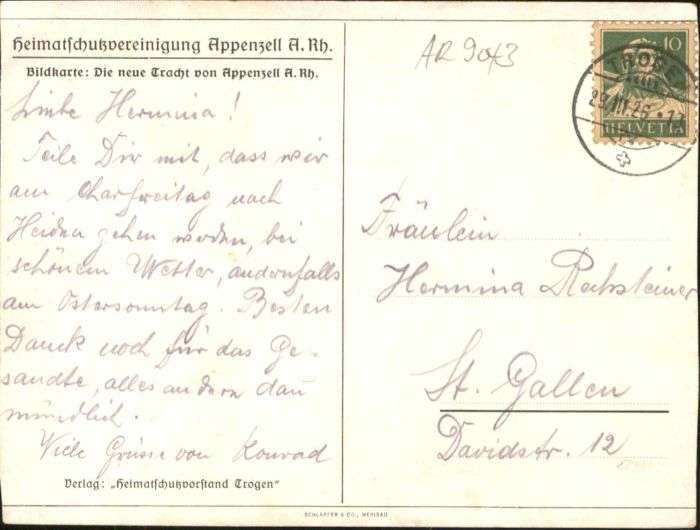 Heimatschutzvereinigung Appenzell A. Rh.
Bildkarte: Die neue Tracht von Appenzell A. Rh.
Liebe Hermina!
Teile Dir mit, dass wir
am Charfreitag nach
Heiden gehen werden, bei
schönem Wetter, andernfalls
am Ostersonntag. Besten
Dank noch für das Ge-
sandte, alles andere dan
mündlich.
Viele Grüsse von Konrad
Verlag: „Heimatschutzvorstand Trogen"
AR 9043
10
HELVETIA
Fräulein
Hermina Rechsteiner
St. Gallen
Davidstr. 12
SCHLÄPFER & CO., HERISAU